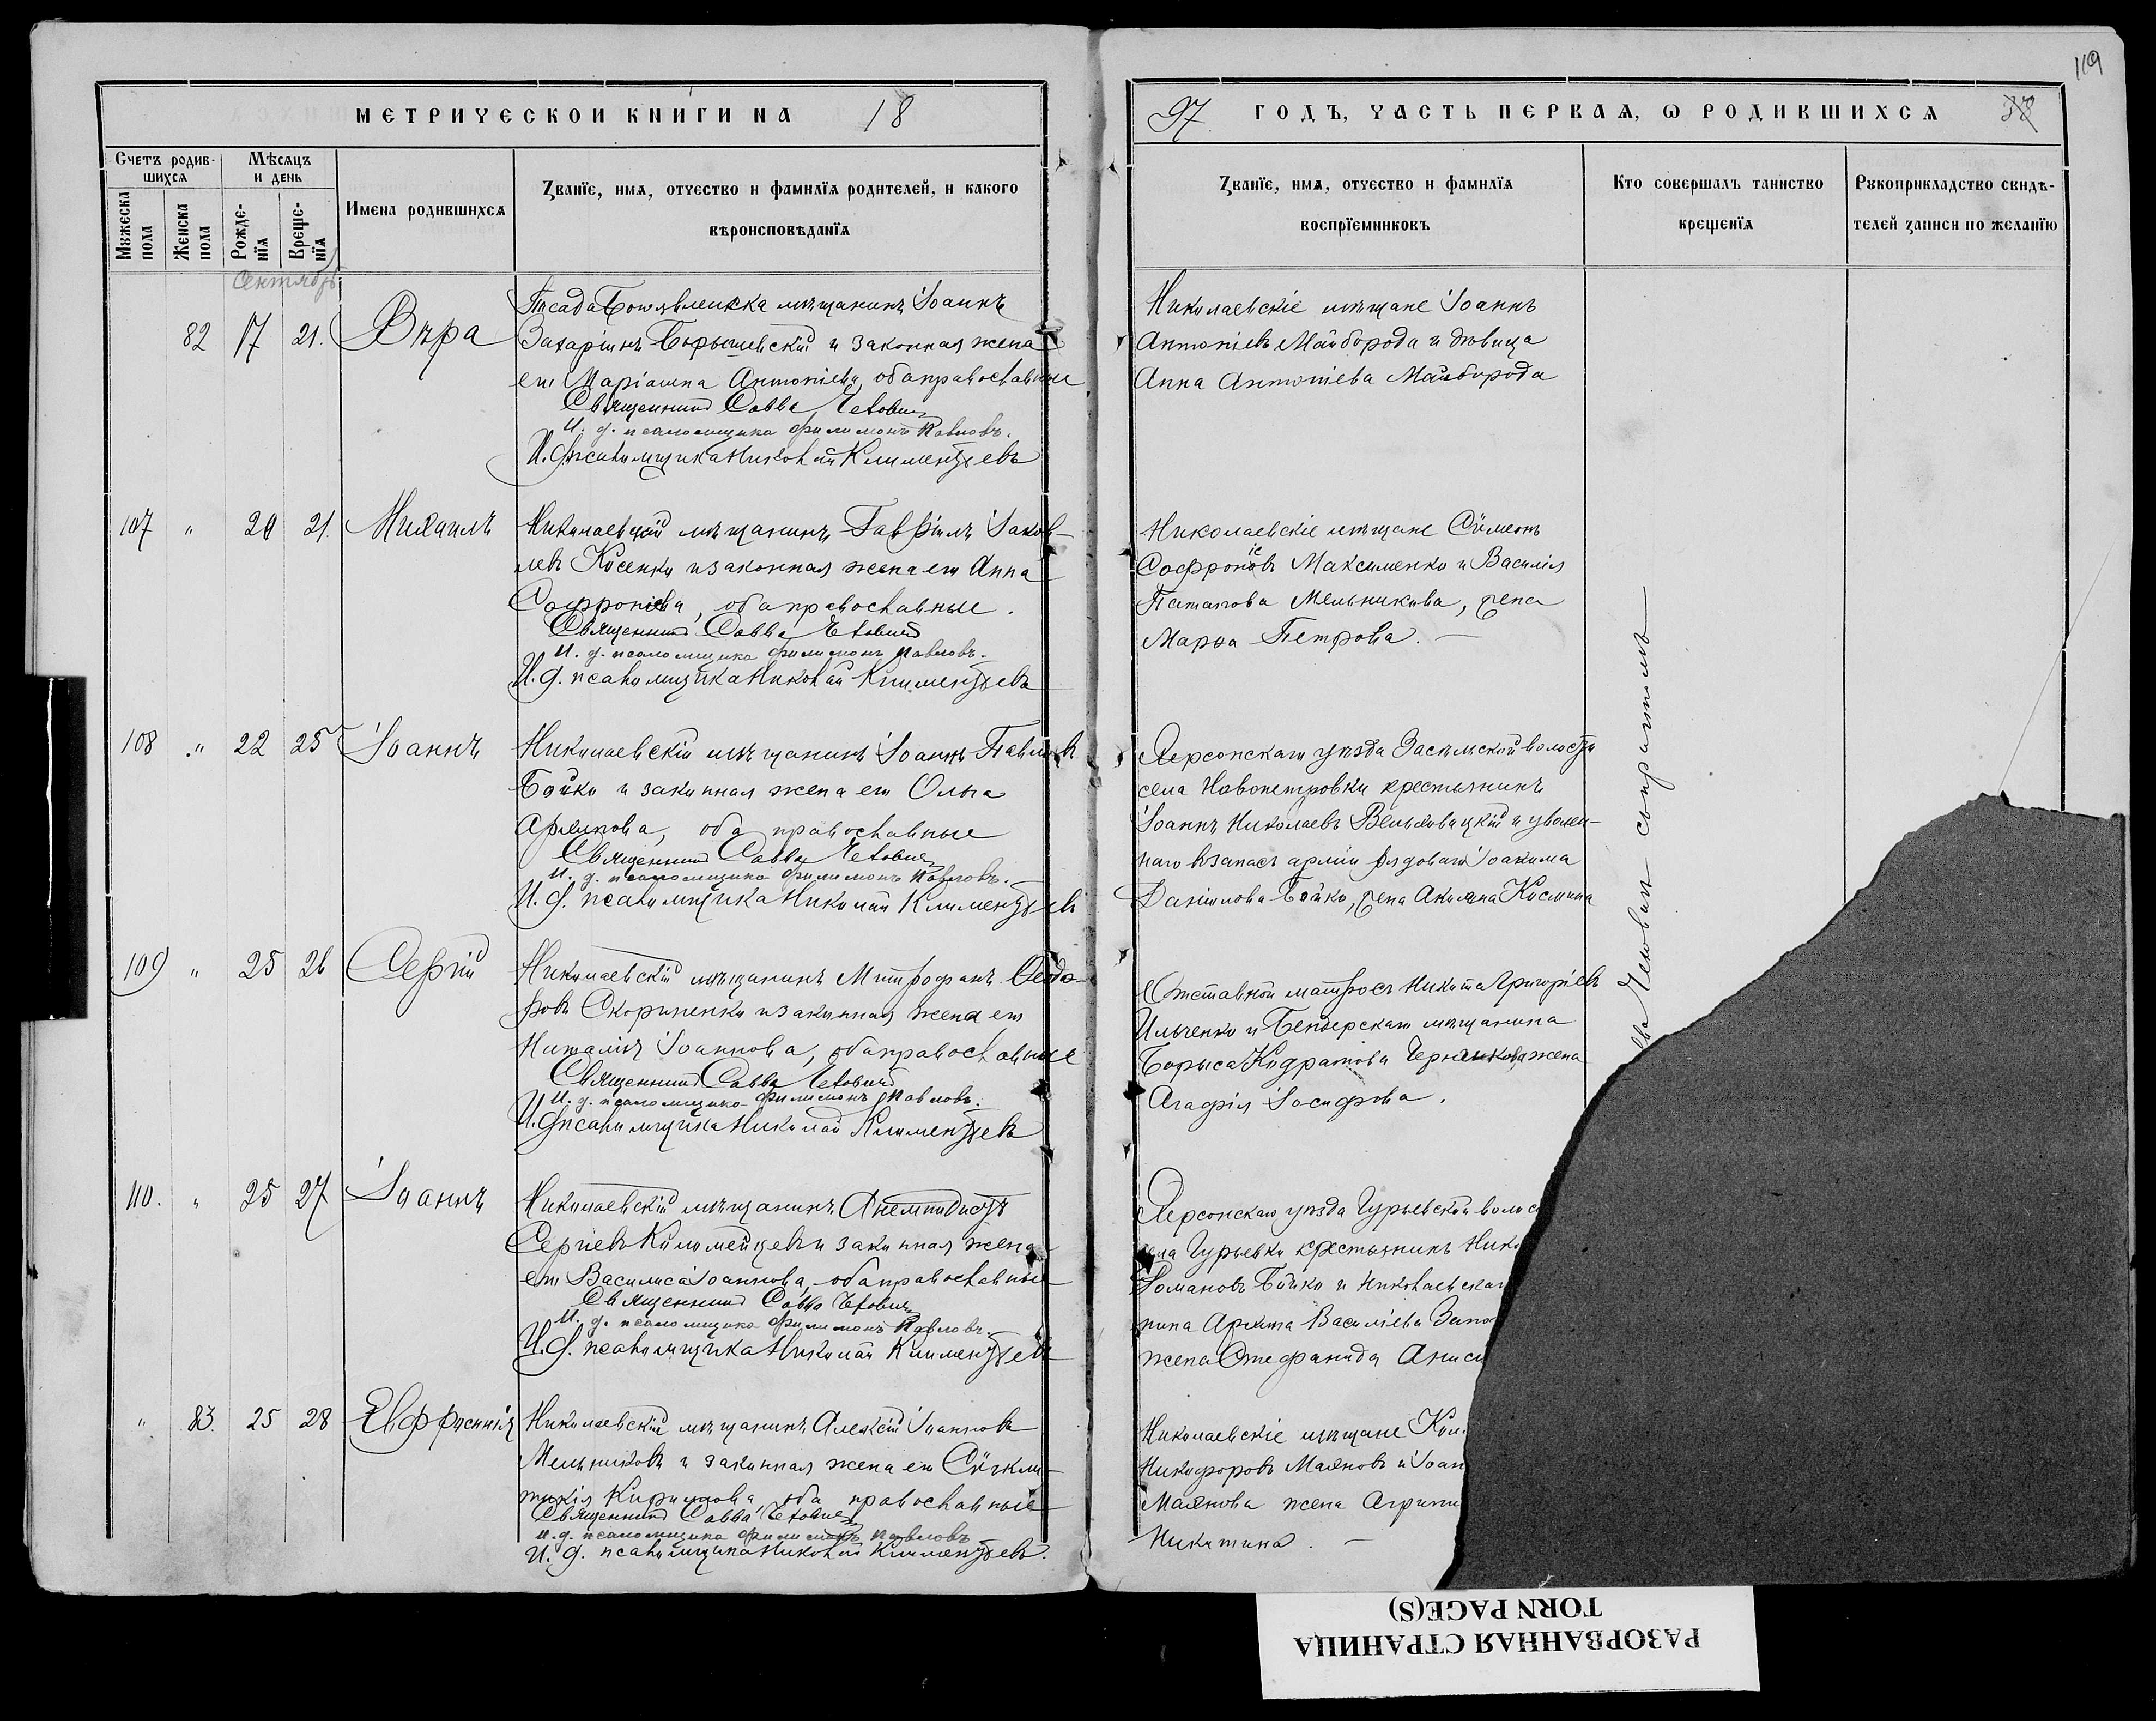 119
МЕТРИЧЕСКОЙ КНИГИ НА 18
97 ГОДЪ, ЧАСТЬ ПЕРВАЯ, Ѡ РОДИВШИХСЯ 38
Счетъ родив-
шихся
Мѣсяцъ
и день
Мужеска
пола
Женска
пола
Рожде-
нїя
Креще-
нїя
Имена родившихся
Званїе, имя, отчество и фамилїя родителей, и какого
вѣроисповѣданїя
Званїе, имя, отчество и фамилїя
воспрїемниковъ
Кто совершалъ таинство
крещенїя
Рукоприкладство свидѣ-
телей записи по желанїю
Сентябрь
82 17 21. Вѣра
Посада Богоявленска мѣщанинъ Іоаннъ
Захаріинъ Борышевскій и законная жена
его Маріамна Антоніева, оба православные
Священникъ Савва Четовичъ
И. д. псаломщика Филимонъ Павловъ.
И. д. псаломщика Николай Климентьевъ
Николаевскіе мѣщане Іоаннъ
Антоніевъ Майборода и дѣвица
Анна Антоніева Майборода
107 " 20 21. Михаилъ
Николаевскій мѣщанинъ Гавріилъ Іаков-
левъ Косенко и законная жена его Анна
Софроніева, оба православные.
Священникъ Савва Четовичъ
И. д. псаломщика Филимонъ Павловъ.
И. д. псаломщика Николай Климентьевъ
Николаевскіе мѣщане Сѵмеонъ
Софроніевъ Максименко и Василія
Потапова Мельникова, жена
Марѳа Петрова. —
108 " 22 25 Іоаннъ
Николаевскій мѣщанинъ Іоаннъ Павловъ
Бойко и законная жена его Ольга
оба православные
Священникъ Савва Четовичъ
И. д. псаломщика Филимонъ Павловъ.
И. д. псаломщика Николай Климентьевъ
Херсонскаго уѣзда Засельской волости
села Новопетровки крестьянинъ
Іоаннъ Николаевъ и уволен-
наго въ запасъ арміи рядоваго Іоакима
Даніилова Бойко, жена Акилина Космина
109 " 25 26 Сергій
Николаевскій мѣщанинъ Митрофанъ Ѳеодо-
ровъ Скорипенко и законная жена его
Наталія Іоаннова, оба православные
Священникъ Савва Четовичъ
И. д. псаломщика Филимонъ Павловъ.
И. д. псаломщика Николай Климентьевъ
Отставной матросъ Никита Григоріевъ
Ильченко и Бендерскаго мѣщанина
Бориса Кодратова жена
Агафія Іосифова.
110. " 25 27 Іоаннъ
Николаевскій мѣщанинъ Анемподистъ
Сергіевъ Коломейцевъ и законная жена
его Василиса Іоаннова, оба православные
Священникъ Савва Четовичъ
И. д. псаломщика Филимонъ Павловъ.
И. д. псаломщика Николай Климентьевъ
Херсонскаго уѣзда Гурьевской волос
села Гурьевки крестьянинъ Нико
Романовъ Бойко и Николаевскаг
нина Василіева Запо
жена Стефанида Аниси
" 83. 25 28 Евфросинія
Николаевскій мѣщанинъ Алексій Іоанновъ
Мельниковъ и законная жена его Сѵнкли-
тикія Кириллова, оба православные
Священникъ Савва Четовичъ
И. д. псаломщика Филимонъ Павловъ
И. д. псаломщика Николай Климентьевъ.
Николаевскіе мѣщане
Никифоровъ Маяновъ и Іоан
Маянова жена Агрипи
Никитина. —
вва Четовичъ съ причтомъ
РАЗОРВАННАЯ СТРАНИЦА
TORN PAGE(S)